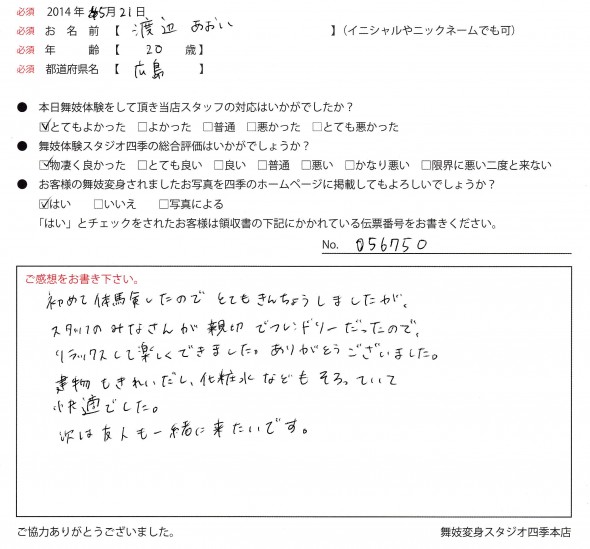 必須 2014年 5月21日
必須 お名前【 渡辺 あおい 】(イニシャルやニックネームでも可)
必須 年齢【 20 歳】
必須 都道府県名【 広島 】
● 本日舞妓体験をして頂き当店スタッフの対応はいかがでしたか？
☑とてもよかった □よかった □普通 □悪かった □とても悪かった
● 舞妓体験スタジオ四季の総合評価はいかがでしょうか？
☑物凄く良かった □とても良い □良い □普通 □悪い □かなり悪い □限界に悪い二度と来ない
● お客様の舞妓変身されましたお写真を四季のホームページに掲載してもよろしいでしょうか？
☑はい □いいえ □写真による
「はい」とチェックをされたお客様は領収書の下記にかかれている伝票番号をお書きください。
No. 056750
ご感想をお書き下さい。
初めて体験したので とてもきんちょうしましたが、
スタッフのみなさんが親切でフレンドリーだったので、
リラックスして楽しくできました。ありがとうございました。
建物もきれいだし、化粧水などもそろっていて
快適でした。
次は友人も一緒に来たいです。
ご協力ありがとうございました。 舞妓変身スタジオ四季本店